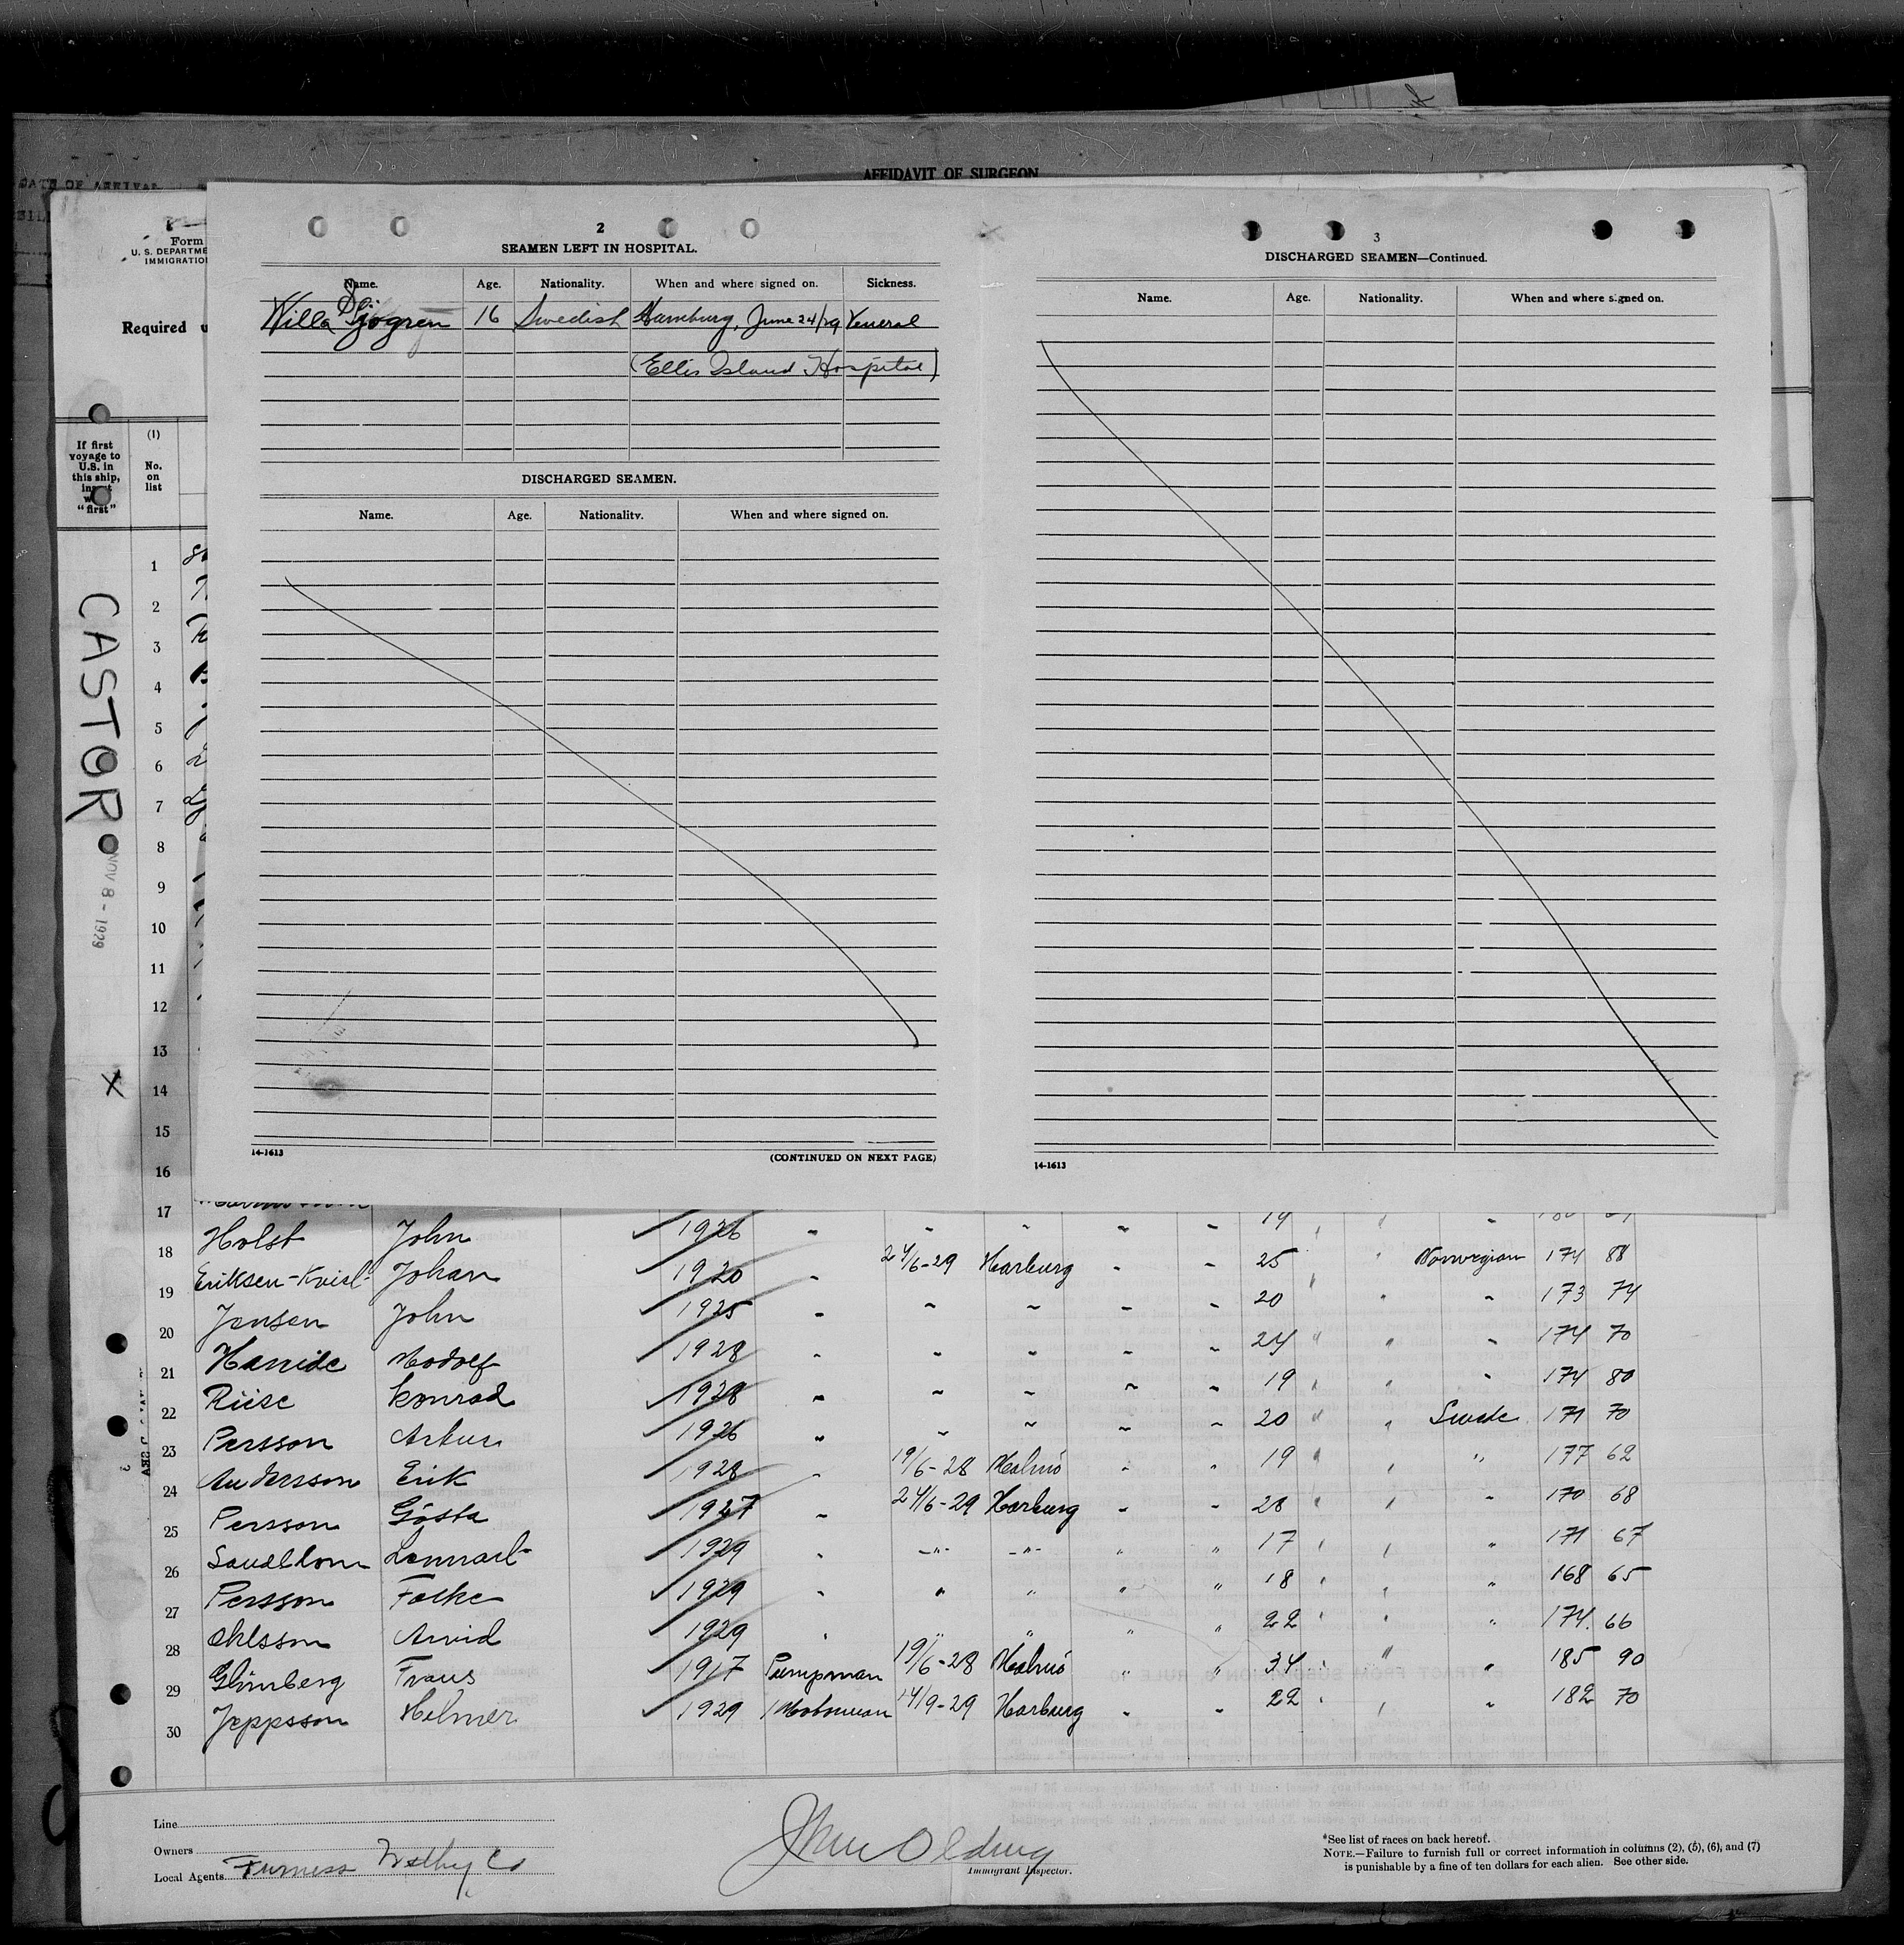 AFFIDAVIT OF SURGEON
DATE OF ARRIVAL
Form
U. S. DEPARTME
IMMIGRATIO
Required u
2
SEAMEN LEFT IN HOSPITAL.
Name. Age. Nationality. When and where signed on. Sickness.
Willa Sjögren 16 Swedish Hamburg, June 24/29 Veneral
(Ellis Island Hospital)
DISCHARGED SEAMEN.
Name. Age. Nationality. When and where signed on.
14-1613
(CONTINUED ON NEXT PAGE)
3
DISCHARGED SEAMEN—Continued.
Name. Age. Nationality. When and where signed on.
14-1613
If first
voyage to
U.S. in
this ship,
insert
"first"
(1)
No.
on
list
CASTOR
NOV 8 - 1929
X
1
2
3
4
5
6
7
8
9
10
11
12
13
14
15
16
17
18 Holst John 1926 " " " " " 19
19 Eriksen-Kvisl Johan 1920 " 24/6-29 Harburg " " 25 " " Norwegian 174 88
20 Jensen John 1925 " " " " " 20 " " 173 74
21 Modolf 1928 " " " " " 24 " " " 174 70
22 Riise Konrad 1928 " " " " " 19 " " " 174 80
23 Persson Artur 1926 " " " " " 20 " " Swede 171 70
24 Andersson Erik 1928 " 19/6-28 Malmö " " 19 " " " 177 62
25 Persson Gösta 1927 " 24/6-29 Harburg " " 28 " " " 170 68
26 Sandblom Lennart 1929 " -"- -"- " " 17 " " " 171 67
27 Persson Folke 1929 " " " " " 18 " " " 168 65
28 Ohlsson Arvid 1929 " " " " 22 " " " 174. 66
29 Glimberg Frans 1917 Pumpman 19/6-28 Malmö " " 34 " " " 185 90
30 Jeppsson Helmer 1929 Motorman 14/9-29 Harburg " " 22 " " " 182 70
Line
Owners
Local Agents Furness Withy Co
John Olding
Immigrant Inspector.
*See list of races on back hereof.
NOTE.—Failure to furnish full or correct information in columns (2), (5), (6), and (7)
is punishable by a fine of ten dollars for each alien. See other side.